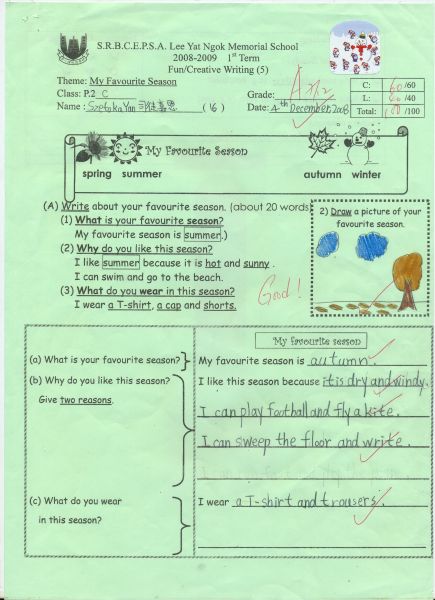 S.R.B.C.E.P.S.A. Lee Yat Ngok Memorial School
2008-2009 1st Term
Fun/Creative Writing (5)
Theme: My Favourite Season
Class: P.2 C
Grade:
C: 60 /60
L: 40 /40
Total: 100 /100
Name : Szeto Ka Yan 司徒嘉恩 (16)
Date: 4th December, 2008
My Favourite Season
spring summer
autumn winter
(A) Write about your favourite season. (about 20 words)
(1) What is your favourite season?
My favourite season is summer.)
(2) Why do you like this season?
I like summer because it is hot and sunny .
I can swim and go to the beach.
(3) What do you wear in this season?
I wear a T-shirt, a cap and shorts.
Good!
2) Draw a picture of your
favourite season.
My favourite season
(a) What is your favourite season?
My favourite season is autumn.
(b) Why do you like this season?
Give two reasons.
I like this season because it is dry and windy.
I can play football and fly a kite.
I can sweep the floor and write.
(c) What do you wear
in this season?
I wear a T-shirt and trousers.